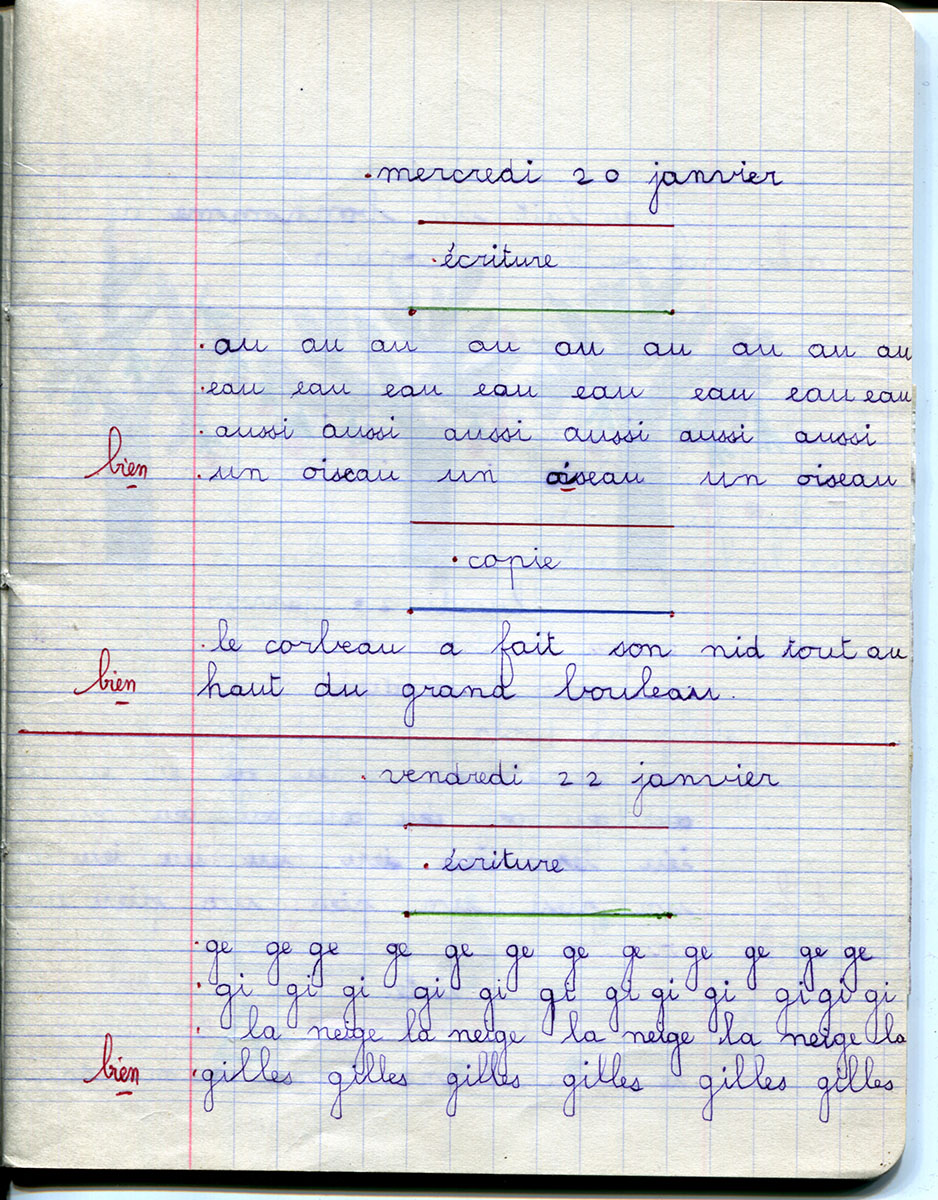 mercredi 20 janvier
écriture
au au au au au au au au au
eau eau eau eau eau eau eau eau
aussi aussi aussi aussi aussi aussi
bien
un oiseau un oiseau un oiseau
copie
le corbeau a fait son nid tout au
bien
haut du grand bouleau.
vendredi 22 janvier
écriture
ge ge ge ge ge ge ge ge ge ge ge ge
gi gi gi gi gi gi gi gi gi gi gi gi
la neige la neige la neige la neige la
bien
gilles gilles gilles gilles gilles gilles